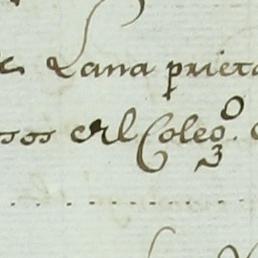 Lana prieta
sos en el Colego.